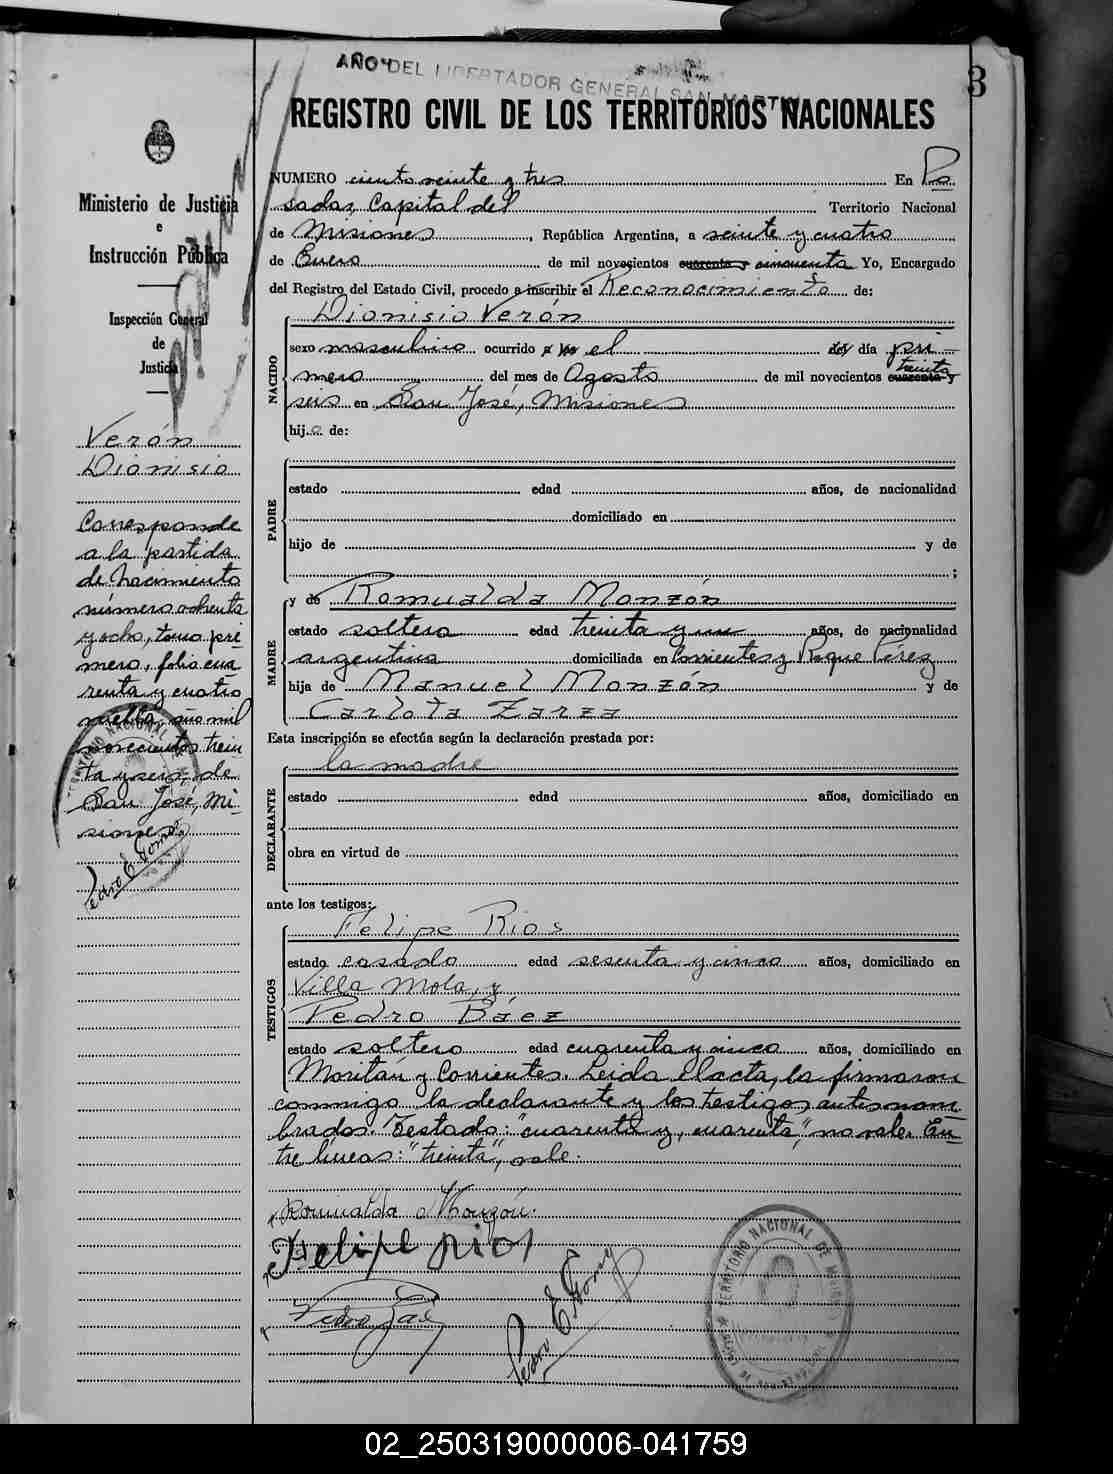 AÑO DEL LIBERTADOR GENERAL SAN MARTIN
3
REGISTRO CIVIL DE LOS TERRITORIOS NACIONALES
Ministerio de Justicia
e
Instrucción Pública
Inspección General
de
Justicia
Verón
Dionisio
Corresponde
a la partida
de nacimiento
número ochenta
y ocho, tomo pri
mero, folio cua
renta y cuatro
vuelta, año mil
novecientos trein
ta y seis, de
San José, Mi-
siones
NUMERO ciento veinte y tres En Po
sadas, Capital del Territorio Nacional
de Misiones, República Argentina, a veinte y cuatro
de Enero de mil novecientos cuarenta y cincuenta Yo, Encargado
del Registro del Estado Civil, procedo a inscribir el Reconocimiento de:
Dionisio Verón
NACIDO
sexo masculino ocurrido el del día pri-
treinta
mero del mes de Agosto de mil novecientos cuarenta y
seis en San José, Misiones
hijo de:
PADRE
estado edad años, de nacionalidad
domiciliado en
hijo de y de
;
y de Romualda Monzón
MADRE
estado soltera edad treinta y un años, de nacionalidad
argentina domiciliada en Corrientes y Roque Pérez
hija de Manuel Monzón y de
Carlota Zarza
Esta inscripción se efectúa según la declaración prestada por:
la madre
DECLARANTE
estado edad años, domiciliado en
obra en virtud de
ante los testigos:
Felipe Rios
TESTIGOS
estado casado edad sesenta y cinco años, domiciliado en
Villa Mola, y
Pedro Báez
estado soltero edad cuarenta y cinco años, domiciliado en
Moritán y Corrientes. Leida el acta, la firmaron
conmigo la declarante y los testigos antes nom
brados. Testado: "cuarenta y, cuarenta", no vale. En
tre líneas: "treinta", vale.
Romualda Monzón.
Felipe rios
Pedro E.
TERRITORIO NACIONAL DE MISIONES
02_250319000006-041759